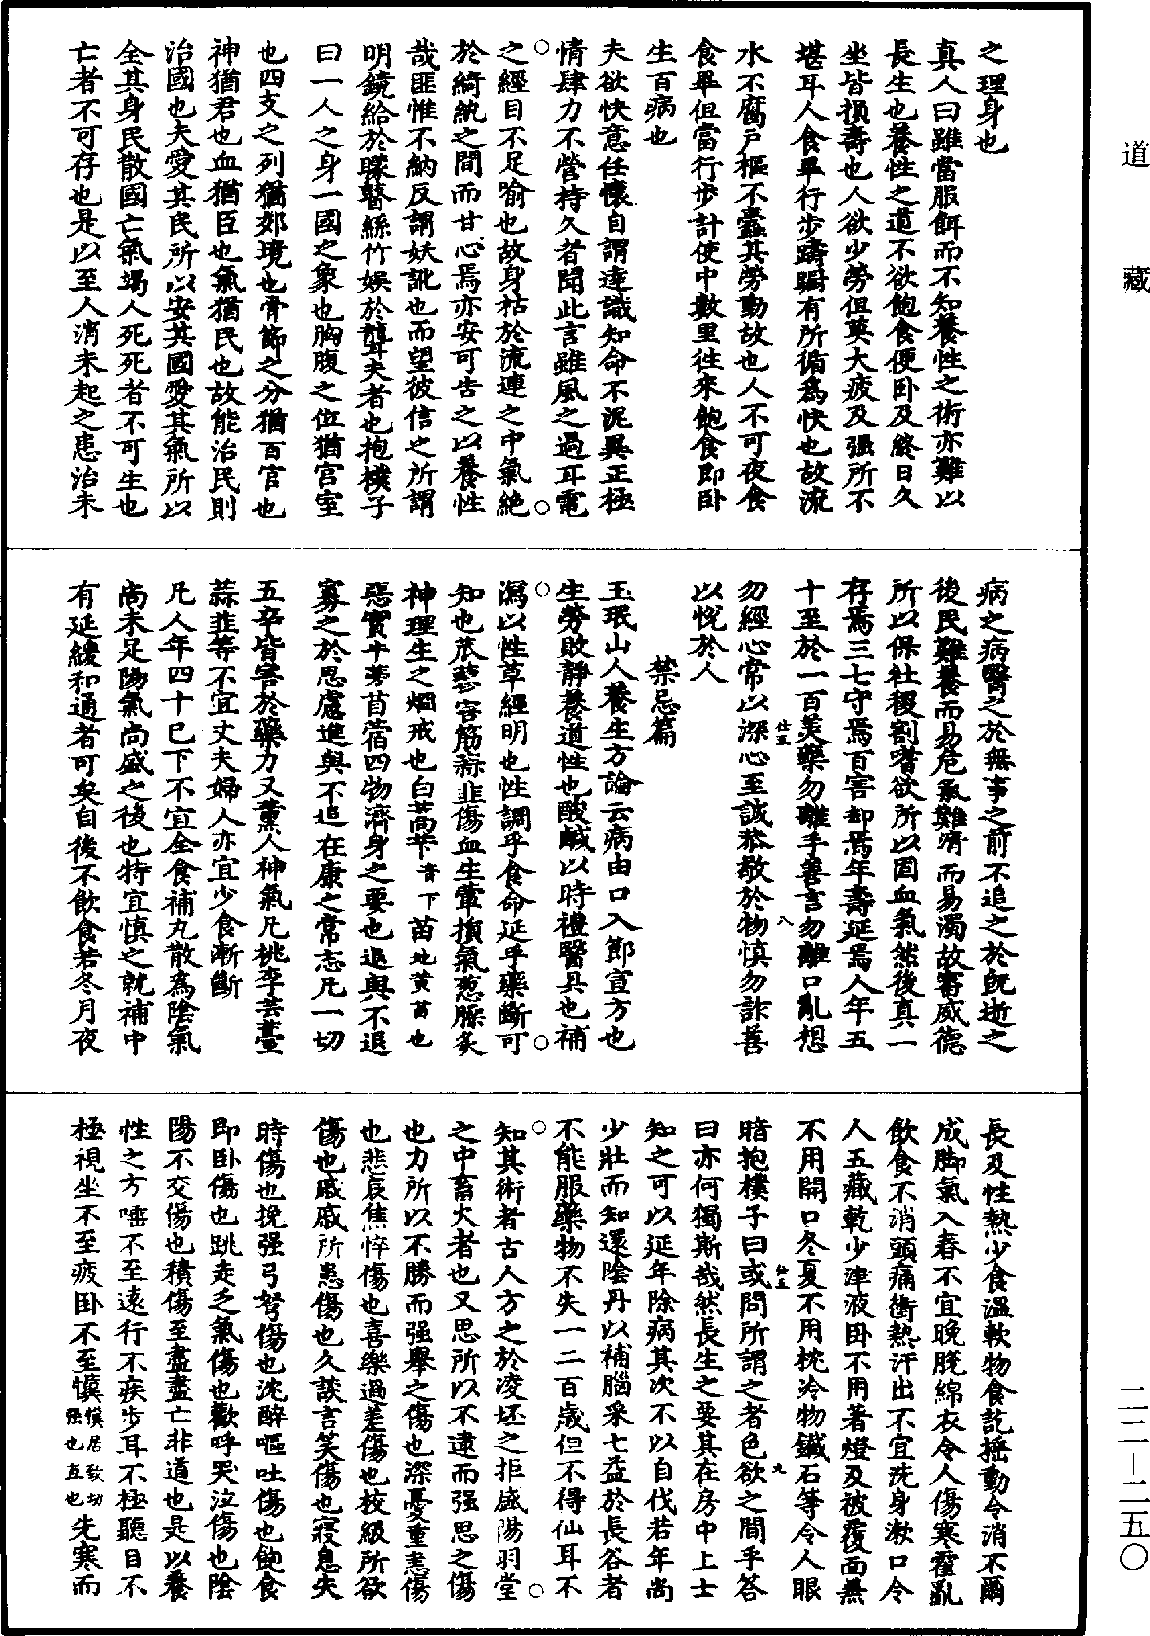 之理身也
真人曰雖當服餌而不知養性之術亦難以
長生也養性之道不欲飽食便卧及終日久
坐皆損壽也人欲少勞但莫大疲及强所不
堪耳人食畢行步躊躕有所循為快也故流
水不腐戶樞不蠹其勞動故也人不可夜食
食畢但當行步計使中數里往來飽食即卧
生百病也
夫欲快意任懷自謂達識知命不泥異正極
情肆力不營持久者聞此言雖風之過耳電
之經目不足喻也故身枯於流連之中氣絶
於綺紈之間而甘心焉亦安可告之以養性
哉匪惟不納反謂妖訛也而望彼信之所謂
明鏡給於矇瞽絲竹娛於聾夫者也抱樸子
曰一人之身一國之象也胸腹之位猶宫室
也四支之列猶郊境也骨節之分猶百官也
神猶君也血猶臣也氣猶民也故能治民則
治國也夫愛其民所以安其國愛其氣所以
全其身民散國亡氣竭人死死者不可生也
亡者不可存也是以至人消未起之患治未
病之病醫之於無事之前不追之於既逝之
後民難養而易危氣難清而易濁故審威德
所以保社稷割嗜欲所以固血氣然後真一
存焉三七守焉百害却焉年壽延焉人年五
十至於一百美藥勿離手善言勿離口亂想
勿經心常以深心至誠恭敬於物慎勿詐善
以悅於人
禁忌篇
玉珉山人養生方論云病由口入節宣方也
生勞敗靜養道性也酸鹹以時禮醫具也補
瀉以性草經明也性調乎食命延乎藥斷可
知也蒸藜容筋蒜韭傷血生葷損氣葱臊炙
神理生之炯戒也白蒿苄音下苗地黄苗也
惡實牛蒡苜蓿四物濟身之要也退與不退
寡之於思慮進與不追在康之常志凡一切
五辛皆害於藥力又薰人神氣凡桃李芸薹
蒜韭等不宜丈夫婦人亦宜少食漸斷
凡人年四十已下不宜全食補丸散為陰氣
尚未足陽氣尚盛之後也特宜慎之就補中
有延緩和通者可矣自後不飲食若冬月夜
長及性熱少食溫軟物食訖摇動令消不爾
成脚氣入春不宜晚脱綿衣令人傷寒霍亂
飲食不消頭痛衝熱汗出不宜洗身漱口令
人五藏乾少津液卧不用著燈及被覆面無
不用開口冬夏不用枕冷物鐵石等令人眼
暗抱樸子曰或問所謂之者色欲之間乎答
曰亦何獨斯哉然長生之要其在房中上士
知之可以延年除病其次不以自伐若年尚
少壯而知還陰丹以補腦采七益於長谷者
不能服藥物不失一二百歲但不得仙耳不
知其術者古人方之於凌坯之拒盛陽羽堂
之中畜火者也又思所以不逮而强思之傷
也力所以不勝而强舉之傷也深憂重恚傷
也悲哀焦悴傷也喜樂過差傷也校級所欲
傷也戚戚所患傷也久談言笑傷也寢息失
時傷也挽强弓弩傷也沈醉嘔吐傷也飽食
即卧傷也跳走乏氣傷也歡呼哭泣傷也陰
陽不交傷也積傷至盡盡亡非道也是以養
性之方唾不至遠行不疾步耳不極聽目不
極視坐不至疲卧不至懻懻居致切强也直也先寒而
道藏
二二—二五〇